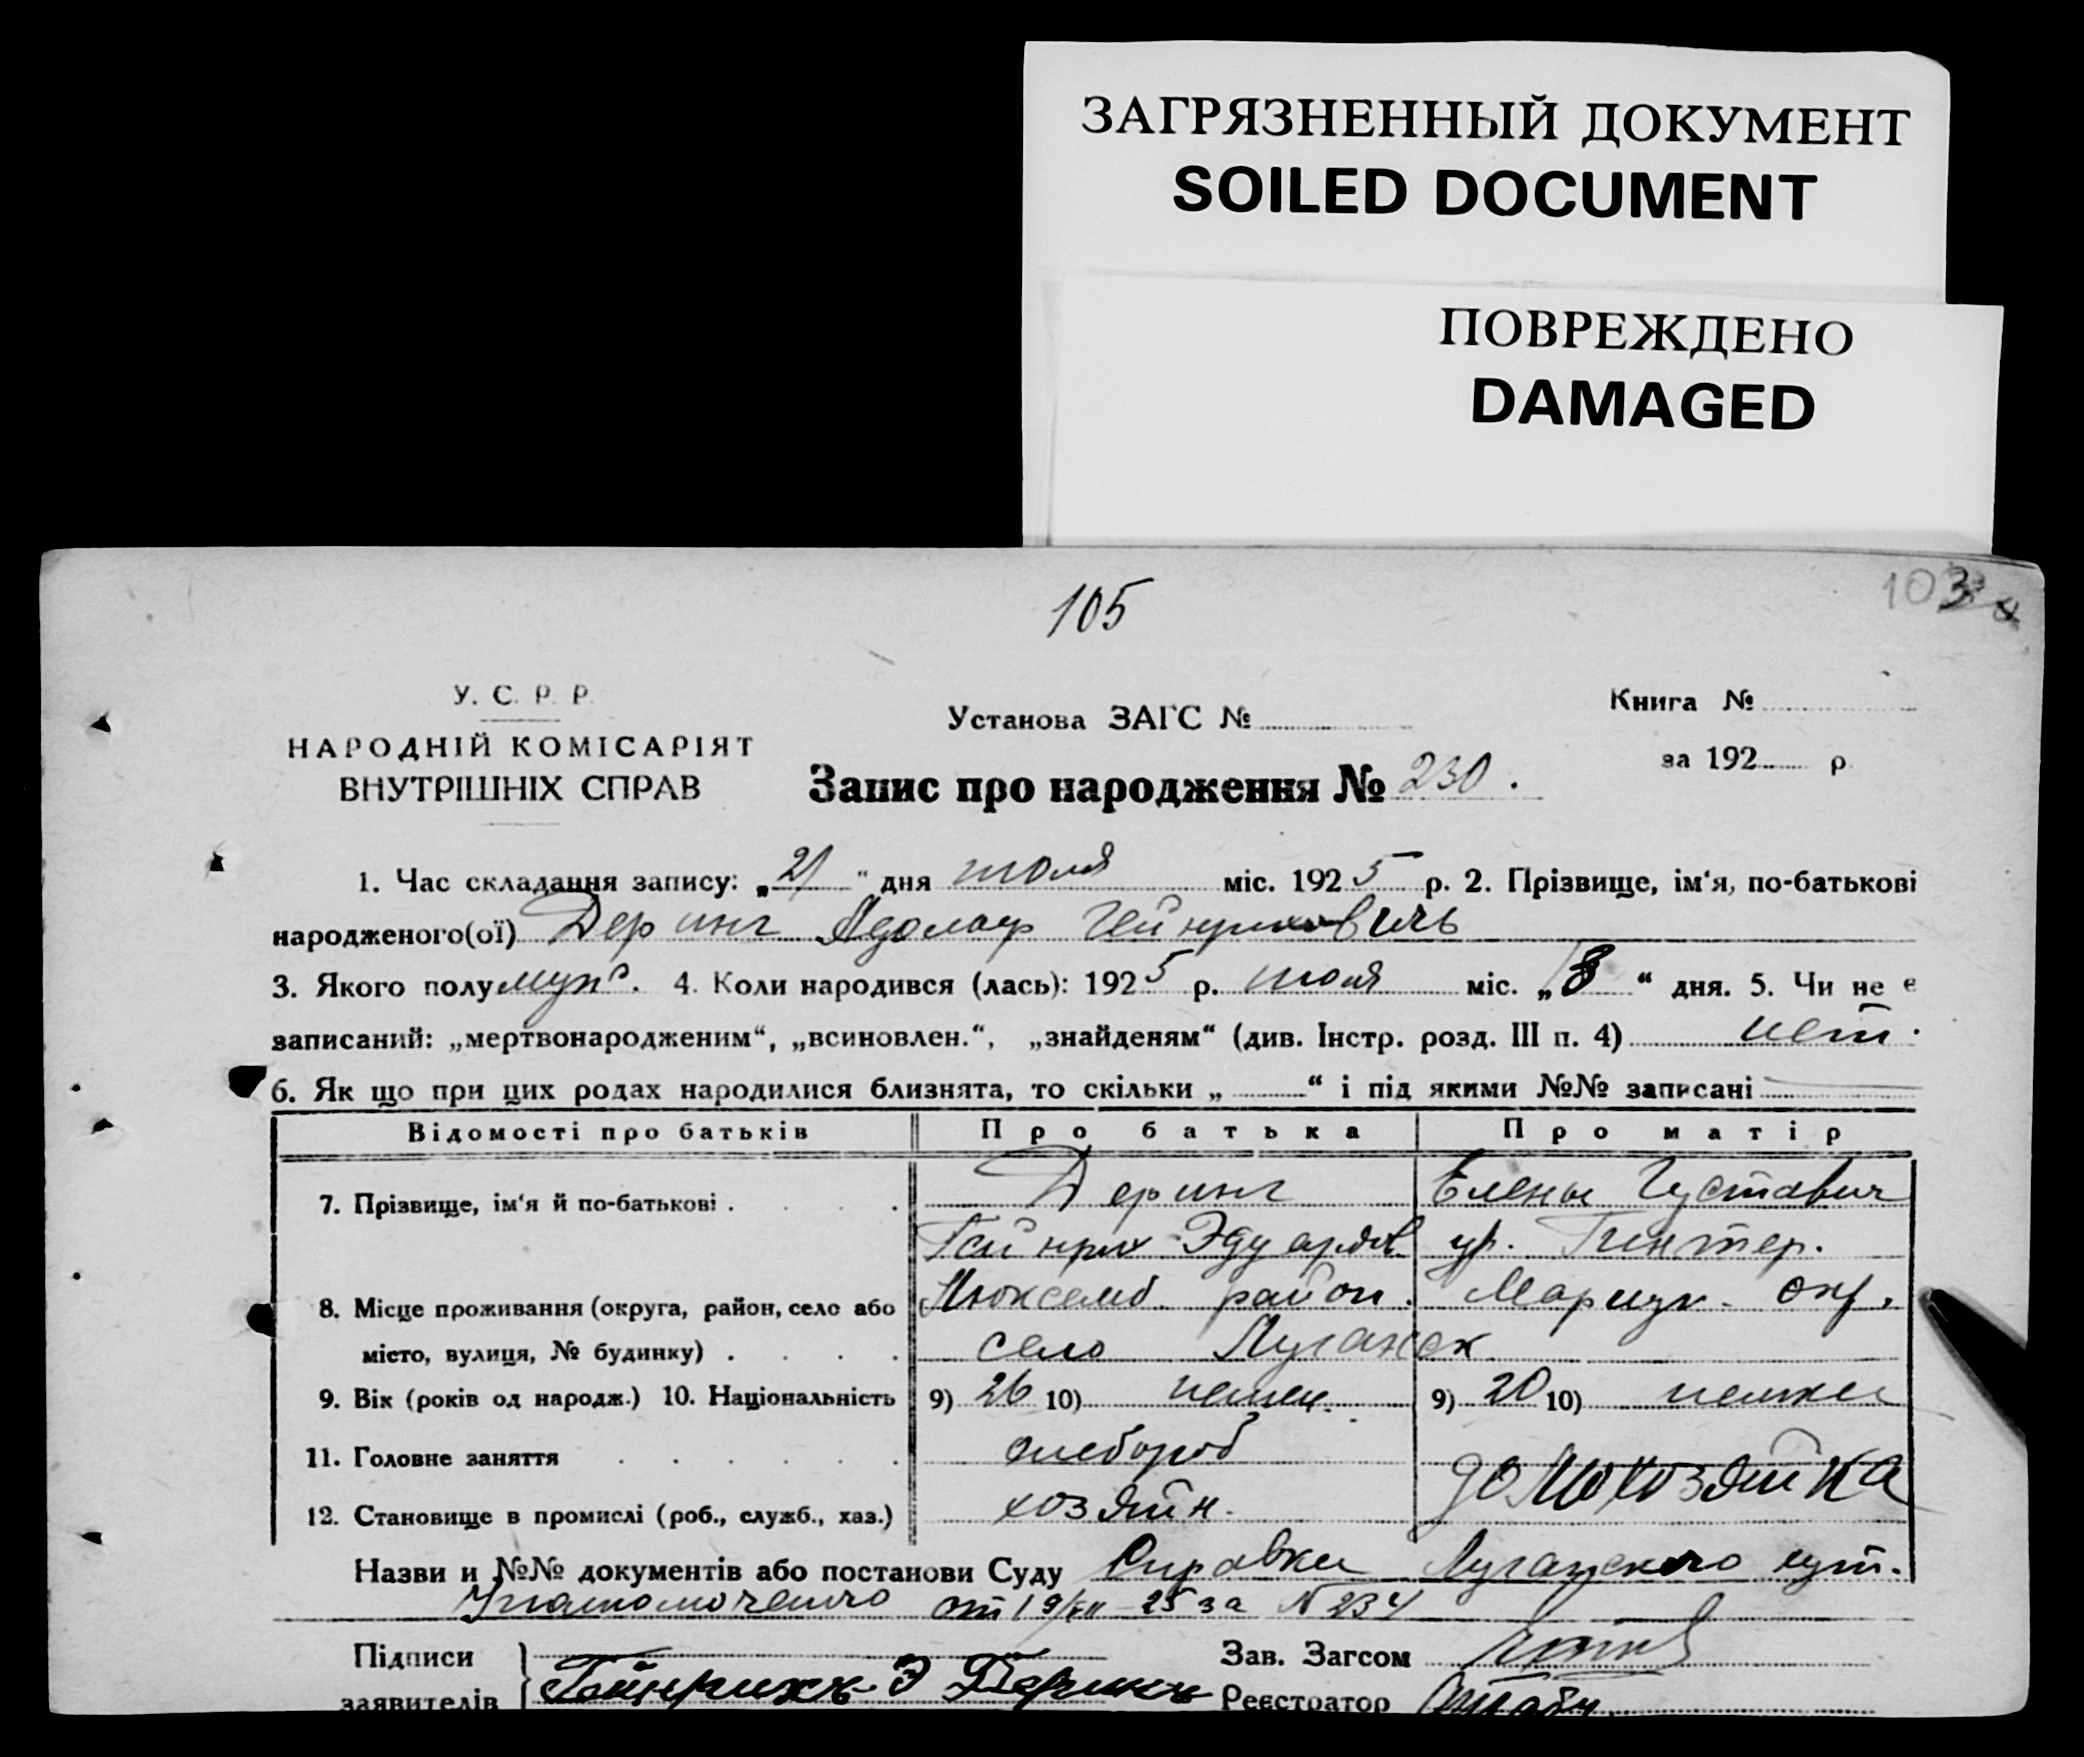 ЗАГРЯЗНЕННЫЙ ДОКУМЕНТ
SOILED DOCUMENT
ПОВРЕЖДЕНО
DAMAGED
105
103
У. С. Р. Р.
НАРОДНІЙ КОМІСАРІЯТ
ВНУТРІШНІХ СПРАВ
Установа ЗАГС №
Книга №
за 192 р.
Запис про народження № 230.
1. Час складання запису: „21“ дня июля міс. 1925 р. 2. Прізвище, ім'я, по-батькові
народженого(ої) Деринг Адольф Гейнрихович
3. Якого полу муж. 4. Коли народився (лась): 1925 р. июля міс. „18“ дня. 5. Чи не є
записаний: „мертвонародженим“, „всиновлен.“, „знайденям“ (див. Інстр. розд. III п. 4) нет.
6. Як що при цих родах народилися близнята, то скільки „ “ і під якими №№ записані
Відомості про батьків Про батька Про матір
7. Прізвище, ім'я й по-батькові . Деринг Елены Густавич
Гейнрих Эдуардов ур. Гинтер.
8. Місце проживання (округа, район, село або Люксемб. район. Мариуп. окр.
місто, вулиця, № будинку) . село Луганск
9. Вік (років од народж.) 10. Національність 9) 26 10) немец. 9) 20 10) немка
11. Головне заняття хлебороб
домохозяйка
12. Становище в промислі (роб., служб., хаз.) хозяйн.
Назви и №№ документів або постанови Суду Справка Луганского
от 19/VII 25 за N 234
Підписи
заявителів Гейнрихъ Э Дерингъ
Зав. Загсом
Реєстратор